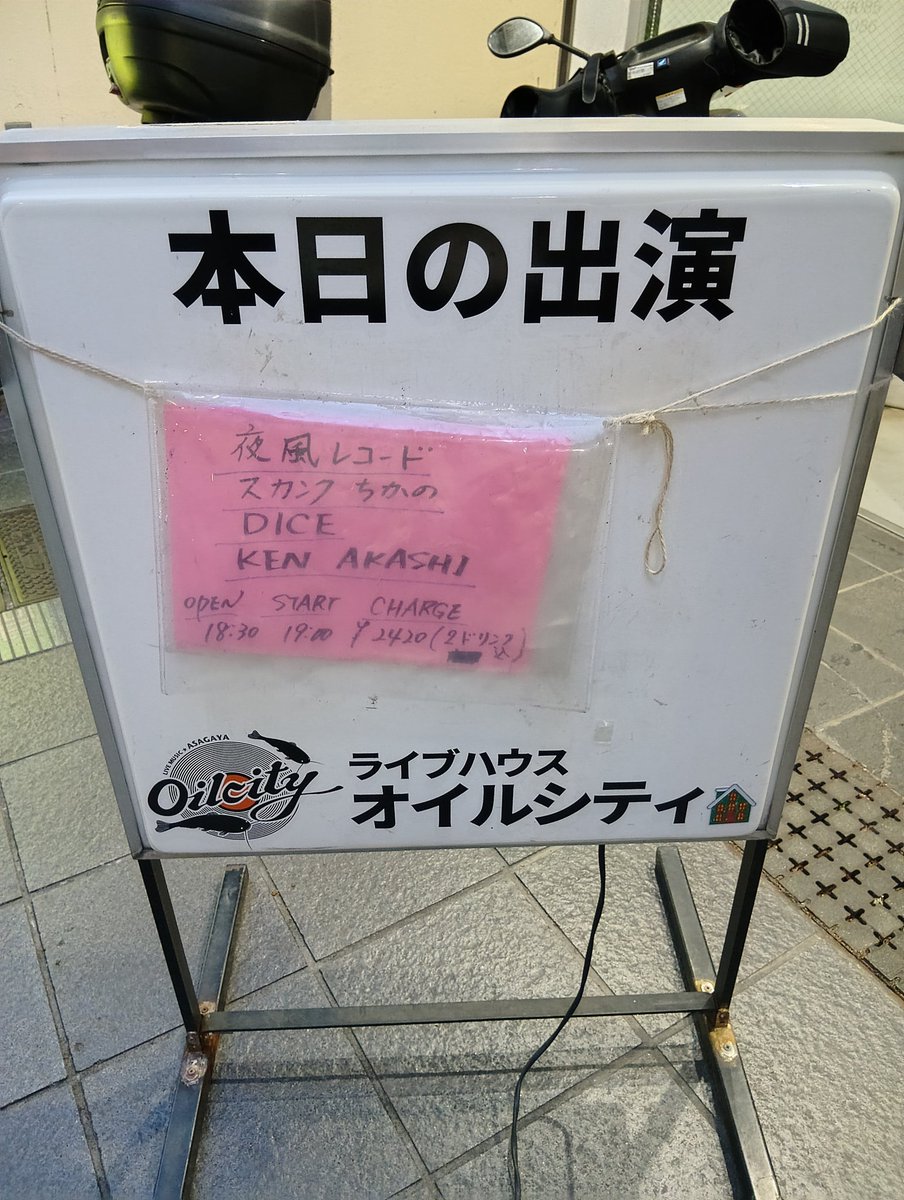 本日の出演
夜風レコード
スカンク ちかの
DICE
KEN AKASHI
OPEN START CHARGE
18:30 19:00 ¥2420(2ドリンク込)
LIVE MUSIC ASAGAYA
Oilcity
ライブハウス
オイルシティ